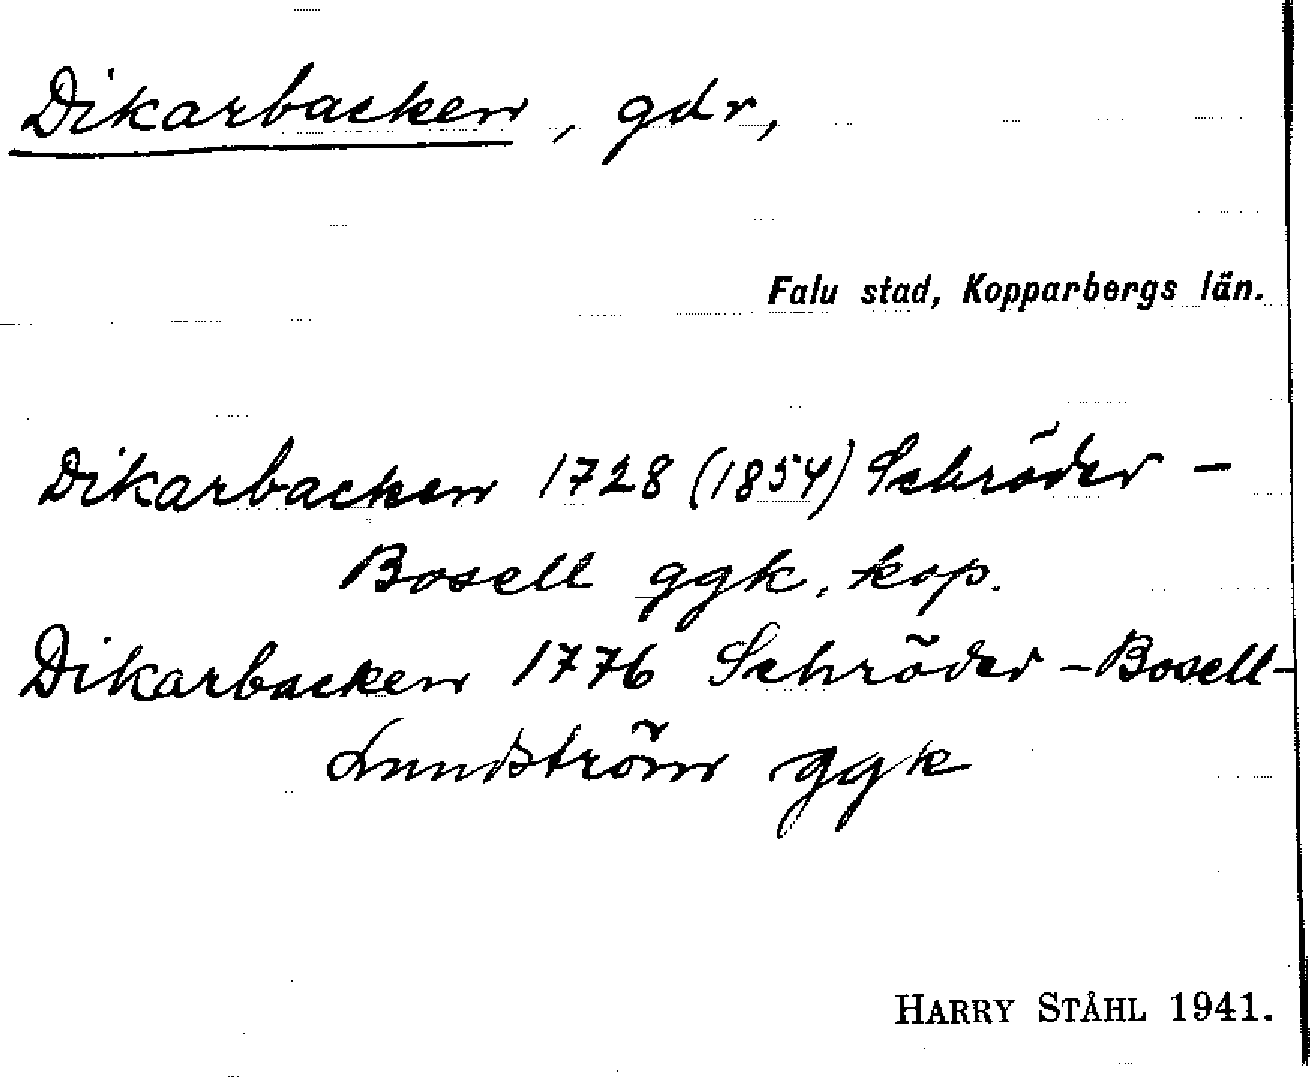 Dikarbacken, gdr,
Falu stad, Kopparbergs län.
Dikarbacken 1728 (1854) Schröder -
Bosell ggk, kop.
Dikarbacken 1776 Schröder - Bosell-
Lundström ggk
HARRY STÅHL 1941.